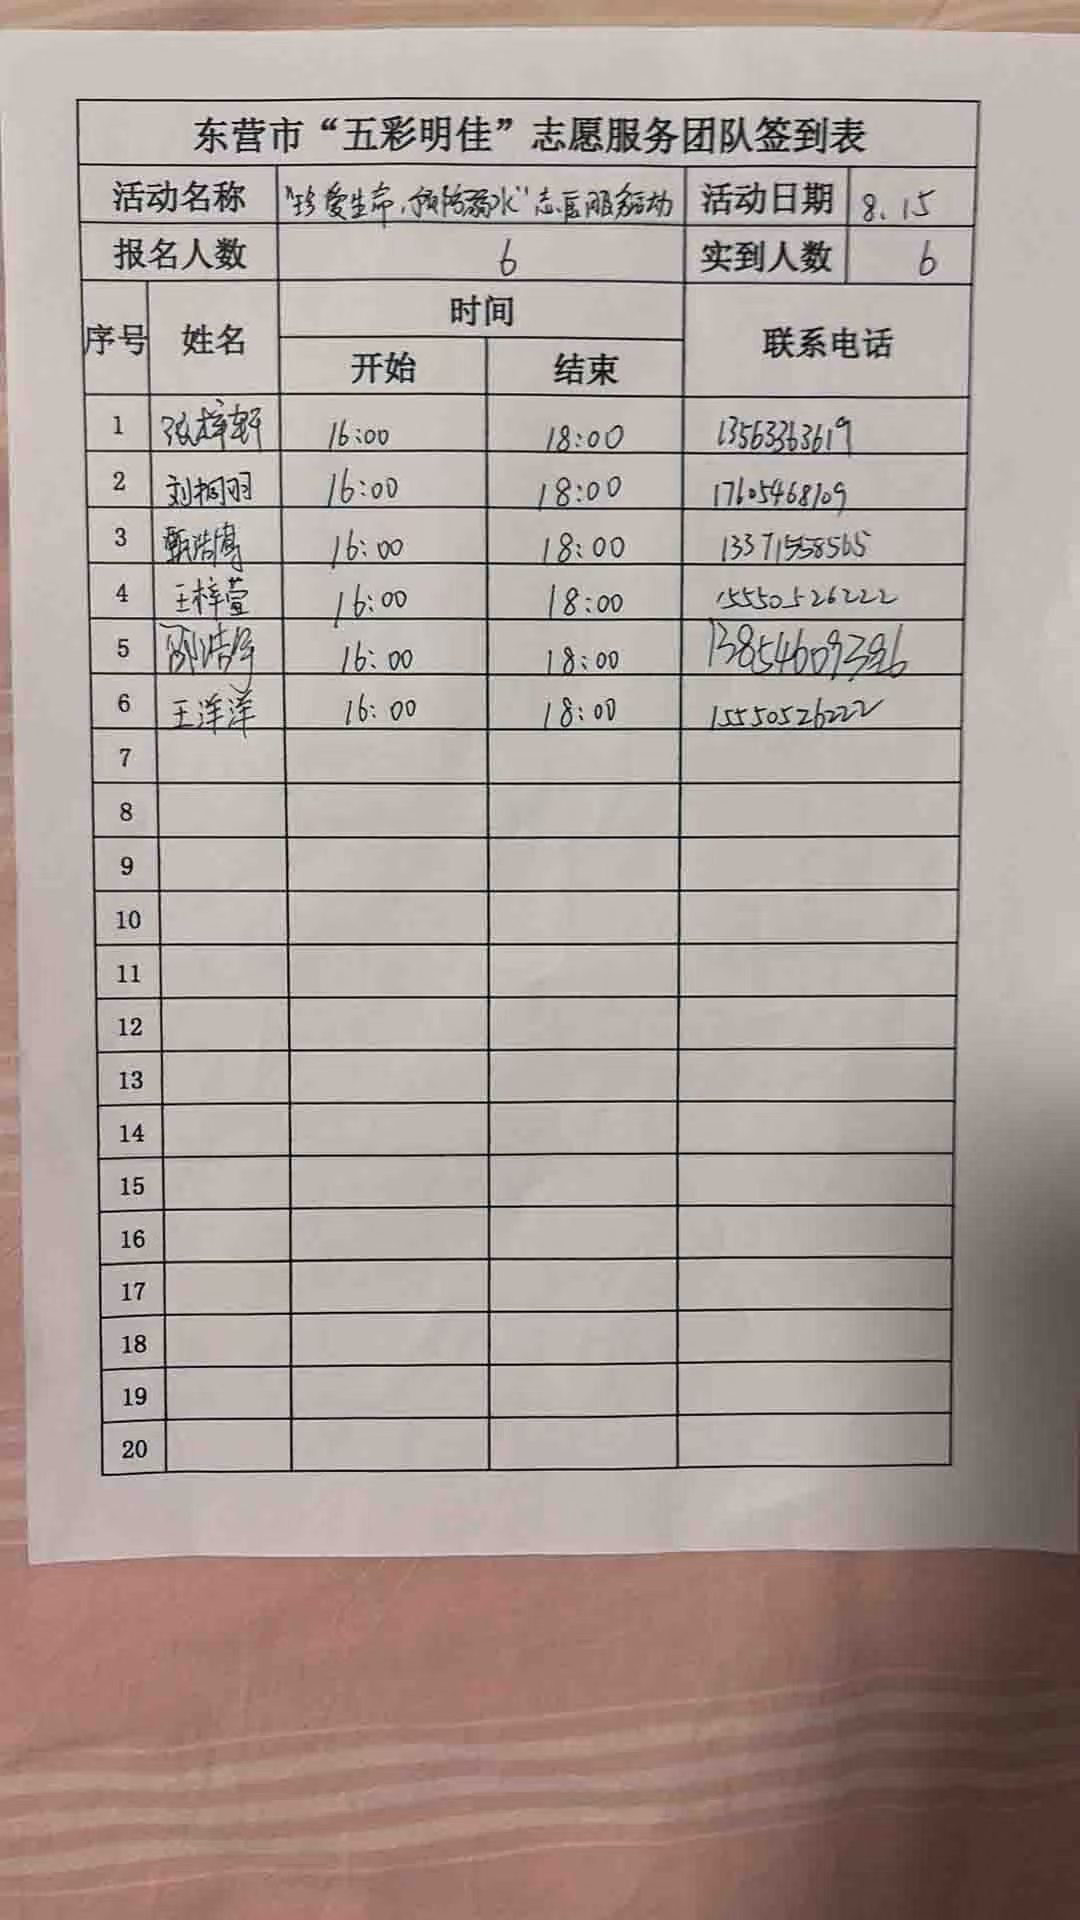 东营市“五彩明佳”志愿服务团队签到表
活动名称 “珍爱生命，预防溺水”志愿服务活动 活动日期 8.15
报名人数 6 实到人数 6
序号 姓名 时间 联系电话
开始 结束
1 张梓轩 16:00 18:00 13563363619
2 刘桐羽 16:00 18:00 17605468109
3 甄浩 16:00 18:00 13371558565
4 王梓萱 16:00 18:00 15550526222
5 16:00 18:00
6 王洋洋 16:00 18:00 15550526222
7
8
9
10
11
12
13
14
15
16
17
18
19
20